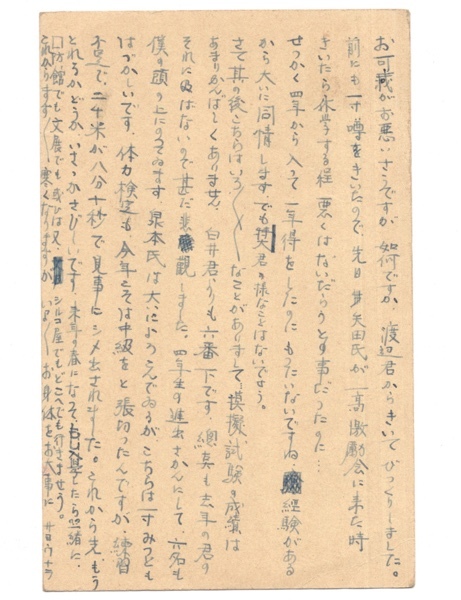 お可哀がお悪いさうですが、如何ですか。渡辺君からきいてびつくりしました。
前にも一寸噂をきいたので、先日 矢田氏が一高激励会に来た時
きいたら休学する程 悪くはないだらうとの事だつたのに…
せつかく四年から入つて一年得をしたのにもつたいないですね 経験がある
から大いに同情します でも 君の様なことはないでせう。
さて其の後こちらはいろ〳〵なことがありまして、模擬試験の成績は
あまりかんばしくありません。白井君よりも六番下です 総点も去年の君の
それに及ばないので甚だ悲観しました。四年生の進出さかんにして、六名も
僕の頭の上にのつてゐます。泉本氏は大によろこんでゐるが こちらは一寸みつとも
はづかしいです。体力検定も今年こそは中級をと張切つたんですが、練習
不足で、二千米が八分十秒で見事にシメ出されました。これから先、もう
とれるかどうか、いささかさびしいです。来年の春になつて、もし入学したら一緒に
館でも文展でも或ひは又 シルコ屋でもどこへでも行きませう。
これからます〳〵寒くなりますが、いよ〳〵お身体をお大事に サヨウナラ